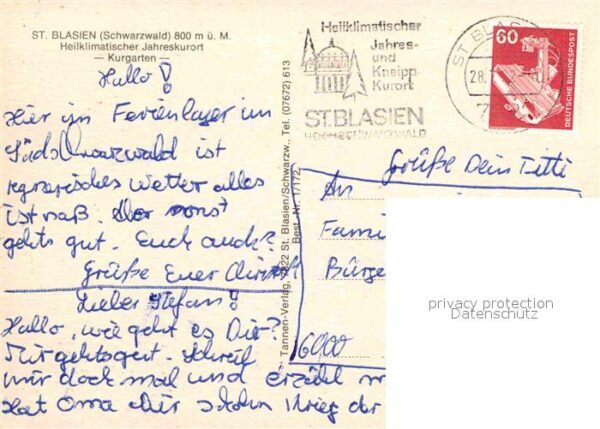 ST. BLASIEN (Schwarzwald) 800 m ü. M.
Heilklimatischer Jahreskurort
— Kurgarten —
Hallo!
Hier im Ferienlager im
Südschwarzwald ist
regnerisches Wetter alles
ist naß. Aber sonst
gehts gut. Euch auch?
Grüße Euer
Lieber Stefan!
Hallo, wie geht es Dir?
Mir gehts gut. Schreib
mir doch mal und erzähl
Hat Oma Dir schon der
Tannen-Verlag, 7822 St. Blasien/Schwarzw., Tel. (07672) 613
Best.-Nr. 1/172
Heilklimatischer
Jahres-
und
Kneipp
Kurort
ST.BLASIEN
HOCHSCHWARZWALD
ST BLAS
28.
7
60
DEUTSCHE BUNDESPOST
Grüße Dein Titti
An
Fami
Bürge
6000
privacy protection
Datenschutz